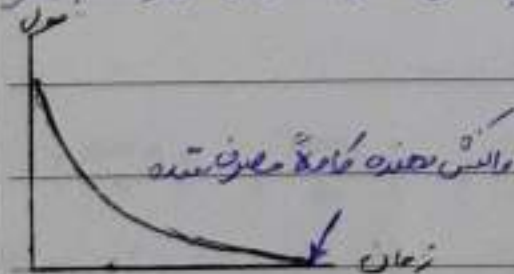 مول
واکنش دهنده کاملاً مصرف شده
زمان